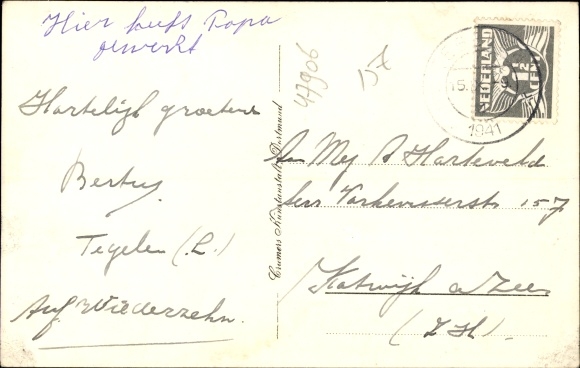 Hier heeft Papa
gewerkt
Hartelijk groeten
Bertus
Tegelen (L.)
Auf Wiederzehn.
47906
157
Cramers Kunstanstalt, Dortmund
NEDERLAND
1941
An Mej A Harteveld
Secr Varkevisserstr 157
Katwijk a Zee
(Z H).